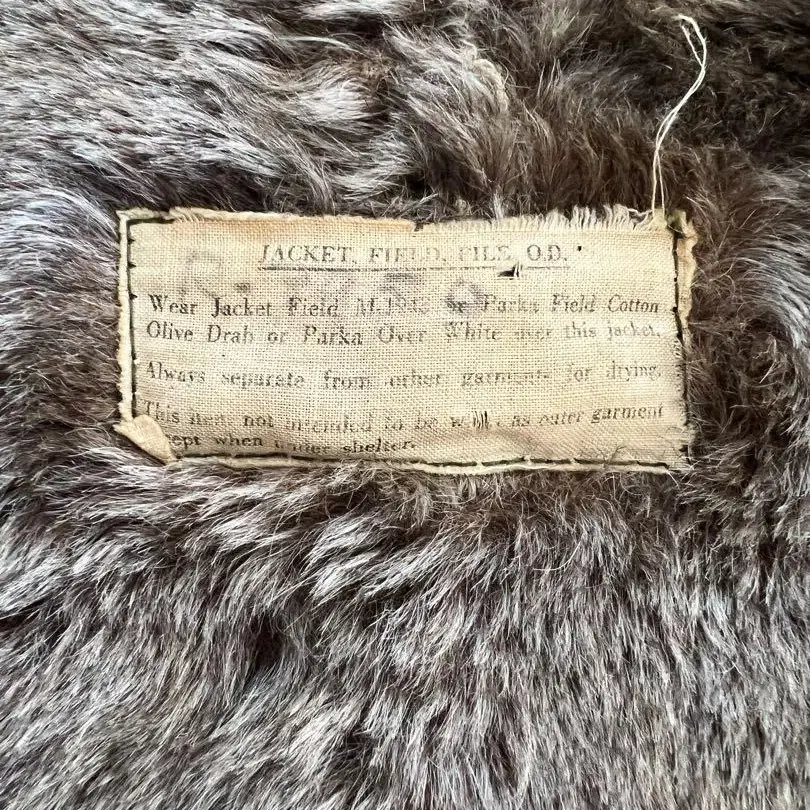 JACKET, FIELD, PILE, O.D.
Wear Jacket Field M-1943 or Parka Field Cotton
Olive Drab or Parka Over White over this jacket.
Always separate from other garments for drying.
This item not intended to be worn as outer garment
when under shelter.